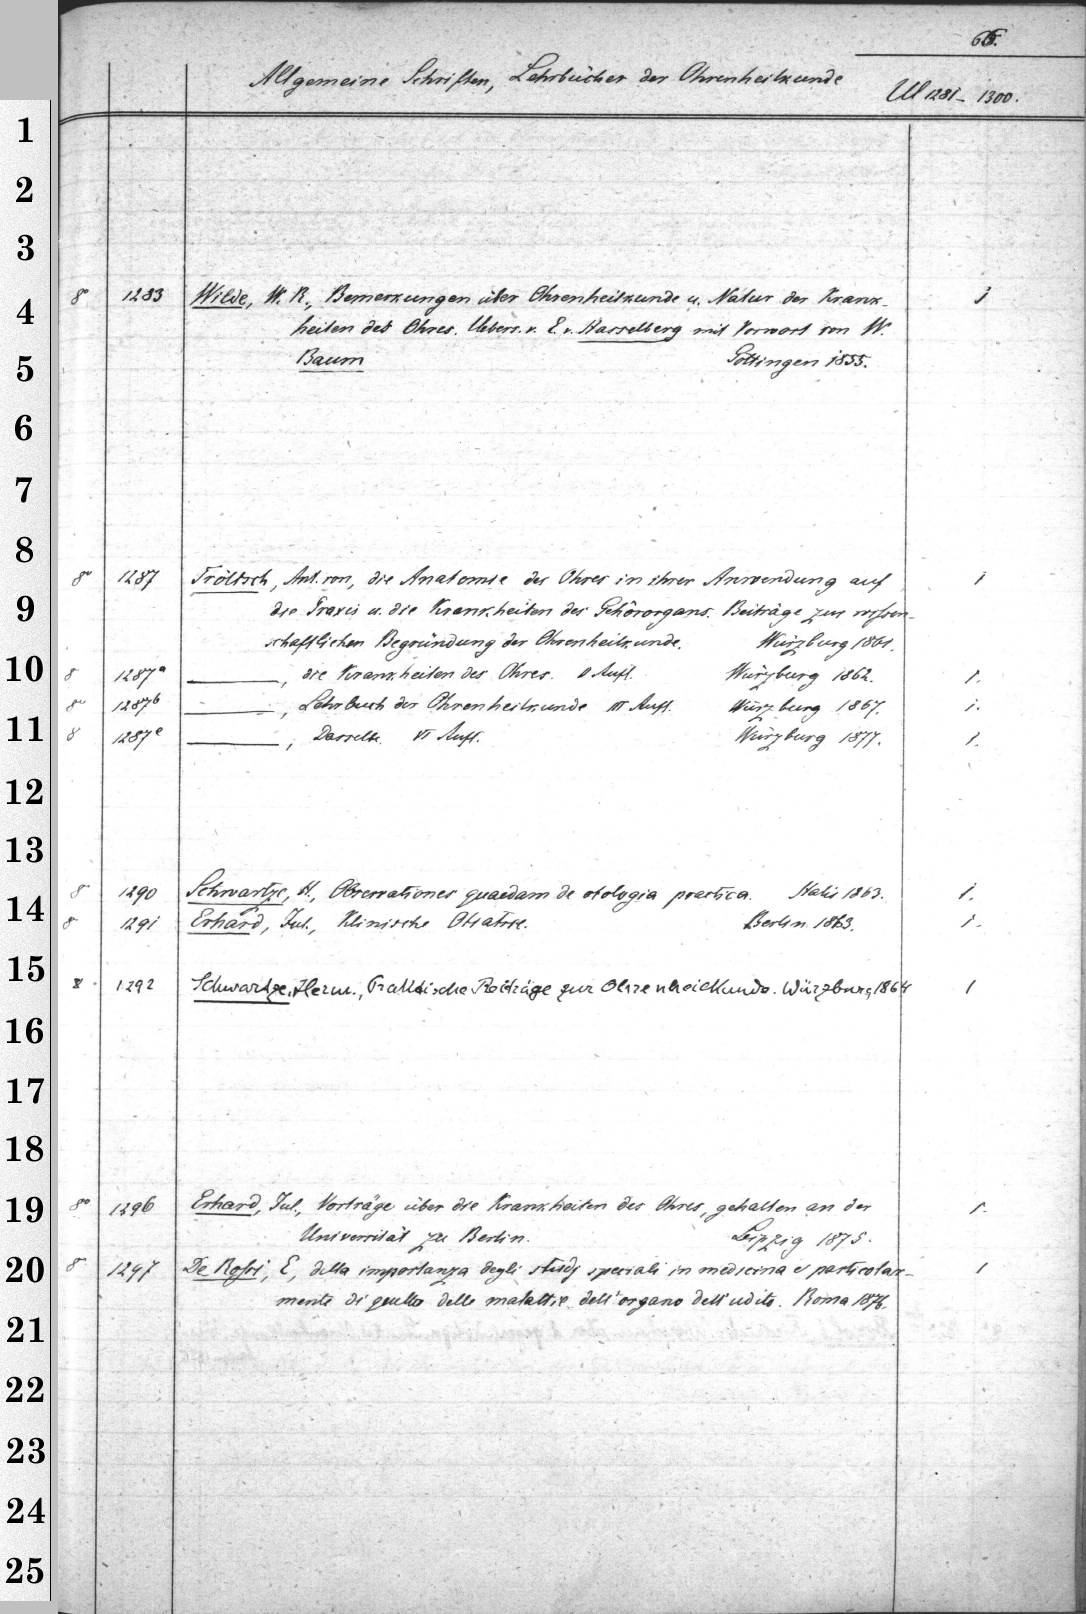 66.
Allgemeine Schriften, Lehrbücher der Ohrenheilkunde
Ul 1281 - 1300.
1
2
3
8° 1283 Wilde, W. R., Bemerkungen über Ohrenheilkunde u. Natur der Krank- 1
4
heiten des Ohres. Uebers. v. E. v. Hasselberg mit Vorwort von W.
5
Baum Göttingen 1855.
6
7
8
8° 1287 Tröltsch, Ant. von, die Anatomie des Ohres in ihrer Anwendung auf 1
9
die Praxis u. die Krankheiten des Gehörorgans. Beiträge zur wissen-
schaftlichen Begründung der Ohrenheilkunde. Würzburg 1861.
10
8 1287a ———, die Krankheiten des Ohres. Aufl. Würzburg 1862. 1.
8° 1287b ———, Lehrbuch der Ohrenheilkunde III Aufl. Würzburg 1867. 1.
11
8 1287c ———, Dasselbe. VI Aufl. Würzburg 1877. 1.
12
13
8° 1290 Schwartze, H., Observationes quaedam de otologia practica. Halis 1863. 1.
14
8 1291 Erhard, Jul., Klinische Otiatrie. Berlin 1863. 1.
15
8 1292 Schwartze, Herm., Praktische Beiträge zur Ohrenheilkunde. Würzburg 1864 1
16
17
18
19
8° 1296 Erhard, Jul., Vorträge über die Krankheiten des Ohres, gehalten an der 1.
Universität zu Berlin. Leipzig 1875.
20
8° 1297 De Rossi, E, della importanza degli studj speciali in medicina e particolar- 1
mente di quello delle malattie dell'organo dell'udito. Roma 1876.
21
22
23
24
25